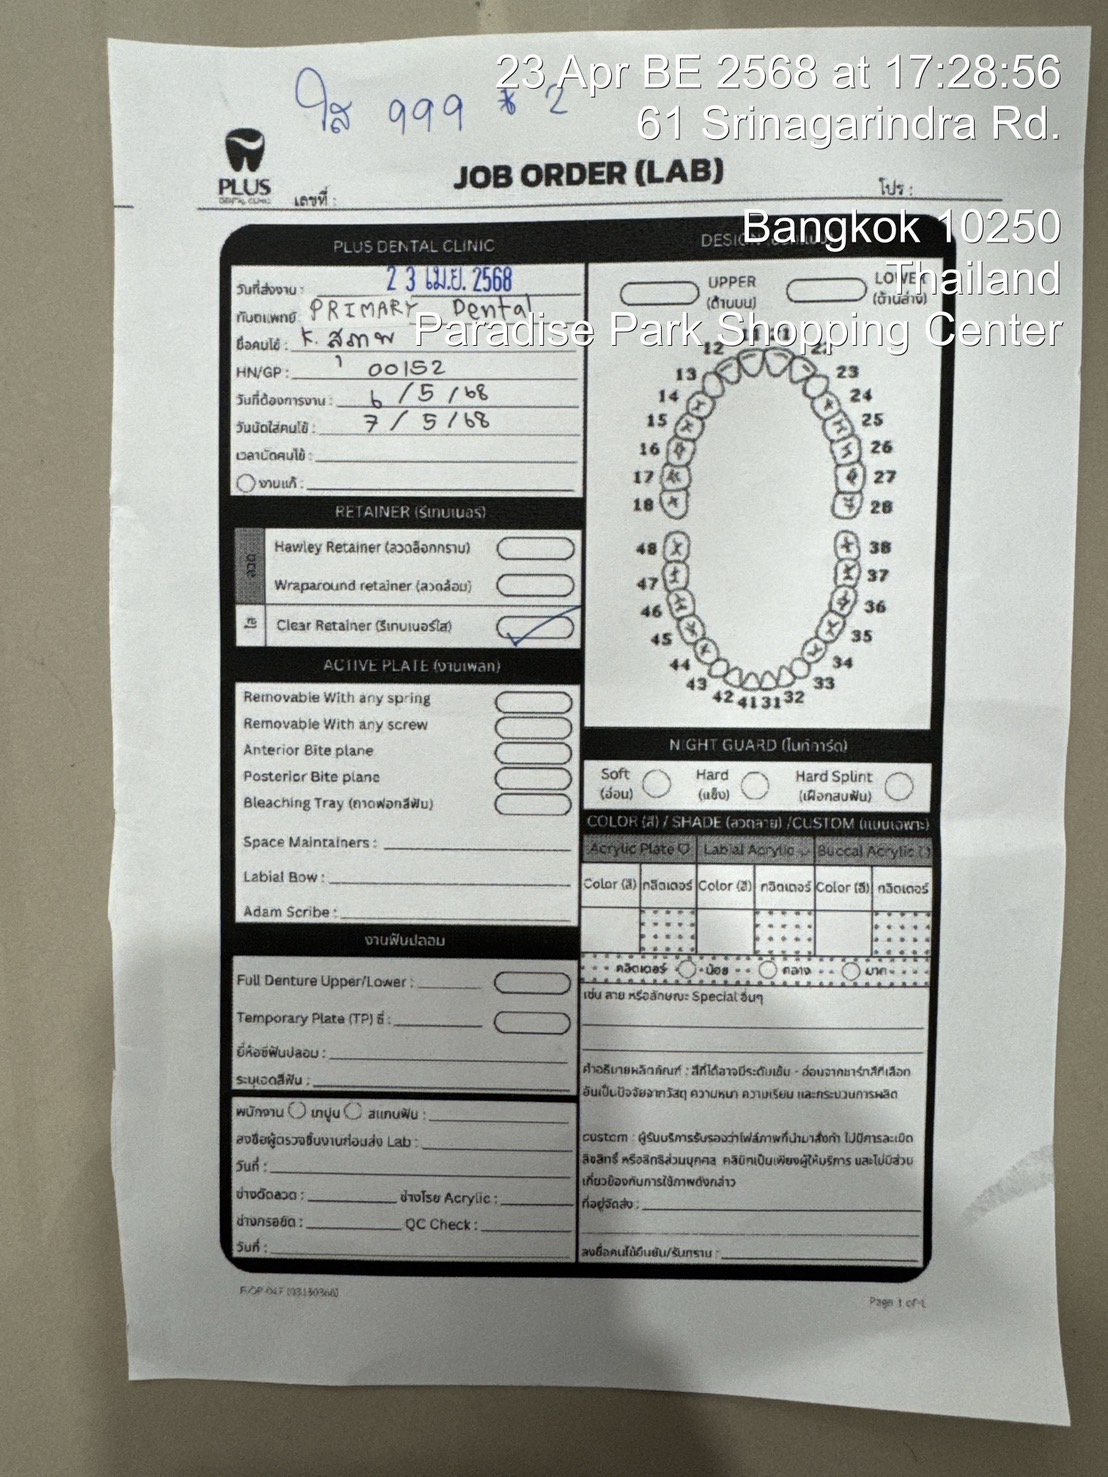 23 Apr BE 2568 at 17:28:56
61 Srinagarindra Rd.
Bangkok 10250
Thailand
Paradise Park Shopping Center
ใส 999 * 2
PLUS
DENTAL CLINIC
เลขที่ :
JOB ORDER (LAB)
โปร :
PLUS DENTAL CLINIC
วันที่ส่งงาน : 23 เม.ย. 2568
ทันตแพทย์ PRIMARY Dental
ชื่อคนไข้ : K.
HN/GP : 00152
วันที่ต้องการงาน : 6 / 5 / 68
วันนัดใส่คนไข้ : 7 / 5 / 68
เวลานัดคนไข้ :
งานแก้ :
RETAINER (รีเทนเนอร์)
ลวด
Hawley Retainer (ลวดล็อกกราม)
Wraparound retainer (ลวดล้อม)
ใส
Clear Retainer (รีเทนเนอร์ใส) ✓
ACTIVE PLATE (งานเพลท)
Removable With any spring
Removable With any screw
Anterior Bite plane
Posterior Bite plane
Bleaching Tray (ถาดฟอกสีฟัน)
Space Maintainers :
Labial Bow :
Adam Scribe :
งานฟันปลอม
Full Denture Upper/Lower :
Temporary Plate (TP) ซี่ :
ยี่ห้อซี่ฟันปลอม :
ระบุเฉดสีฟัน :
พนักงาน เทปูน สแกนฟัน :
ลงชื่อผู้ตรวจชิ้นงานก่อนส่ง Lab :
วันที่ :
ช่างดัดลวด : ช่างโรย Acrylic :
ช่างกรอขัด : QC Check :
วันที่ :
DESIGN
UPPER
(ด้านบน)
LOWER
(ด้านล่าง)
11 21
12 22
13 23
14 24
15 25
16 26
17 27
18 28
48 38
47 37
46 36
45 35
44 34
43 33
42 41 31 32
NIGHT GUARD (ไนท์การ์ด)
Soft
(อ่อน)
Hard
(แข็ง)
Hard Splint
(เฝือกสบฟัน)
COLOR (สี) / SHADE (ลวดลาย) /CUSTOM (แบบเฉพาะ)
Acrylic Plate Labial Acrylic Buccal Acrylic
Color (สี) กลิตเตอร์ Color (สี) กลิตเตอร์ Color (สี) กลิตเตอร์
กลิตเตอร์ น้อย กลาง มาก
เช่น ลาย หรือลักษณะ Special อื่นๆ
คำอธิบายผลิตภัณฑ์ : สีที่ได้อาจมีระดับเข้ม - อ่อนจากชาร์ทสีที่เลือก
อันเป็นปัจจัยจากวัสดุ ความหนา ความเรียบ และกระบวนการผลิต
custom : ผู้รับบริการรับรองว่าไฟล์ภาพที่นำมาสั่งทำ ไม่มีการละเมิด
ลิขสิทธิ์ หรือสิทธิส่วนบุคคล คลินิกเป็นเพียงผู้ให้บริการ และไม่มีส่วน
เกี่ยวข้องกับการใช้ภาพดังกล่าว
ที่อยู่จัดส่ง :
ลงชื่อคนไข้ยืนยัน/รับทราบ :
Page 1 of 1